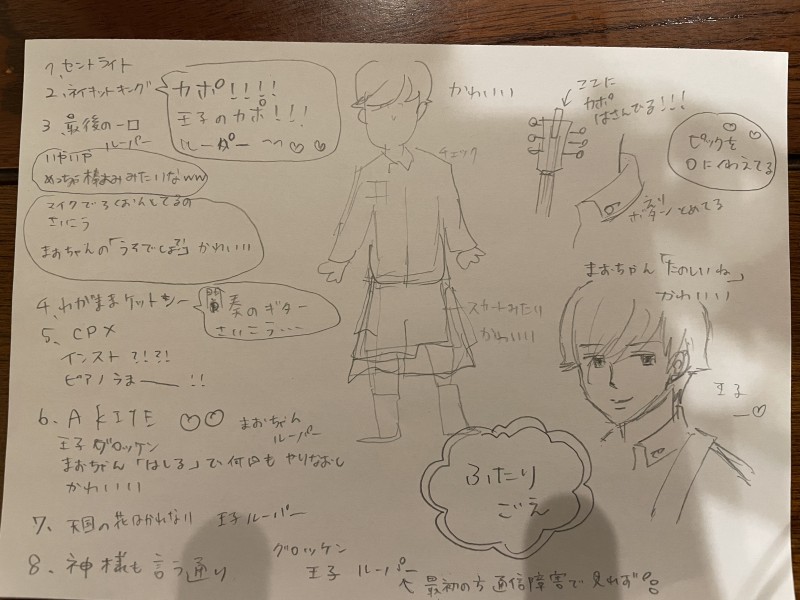 1、セントライト
2、ネイキッドキング
カポ!!!!
王子のカポ!!!
ルーパー ~~♡♡
3、最後の一口
ルーパー
いやいや
めっちゃ棒読みみたいなww
マイクでろくおんしてるの
さいこう
まおちゃんの「うろでしょ」かわいい
4、わがままケットシー
間奏のギター
さいこう…
5、CPX
インスト?!?!
ピアノうまー!!
6、A KITE ♡♡
まおちゃん
ルーパー
王子グロッケン
まおちゃん「はしる」で何回もやりなおし
かわいいい
7、天国の花はかれない 王子ルーパー
8、神様も言う通り
グロッケン
王子 ルーパー
↑最初の方通信障害で見れず
かわいい
チェック
スカートみたい
かわいい
ここに
カポ
はさんでる!!!
ピックを
口にくわえてる
えり
ボタンとめてる
まおちゃん「たのしいね」
かわいい
王子
ー♡
ふたり
ごえ